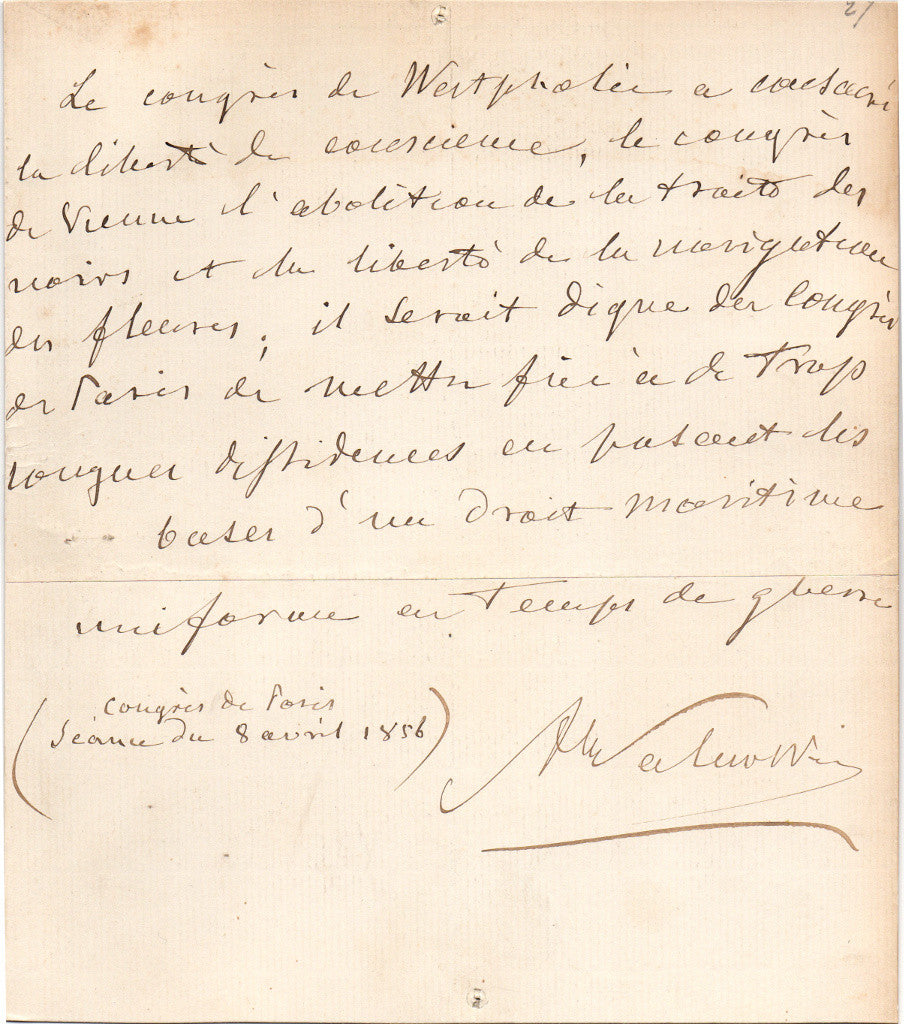 21
Le congrès de Westphalie a consacré
la liberté de conscience, le congrès
de Vienne l'abolition de la traite des
noirs et la liberté de la navigation
des fleuves, il serait digne du Congrès
de Paris de mettre fin à de trop
longues dissidences en posant les
bases d'un droit maritime
uniforme en temps de guerre
(Congrès de Paris
Séance du 8 avril 1856)
A Walewski